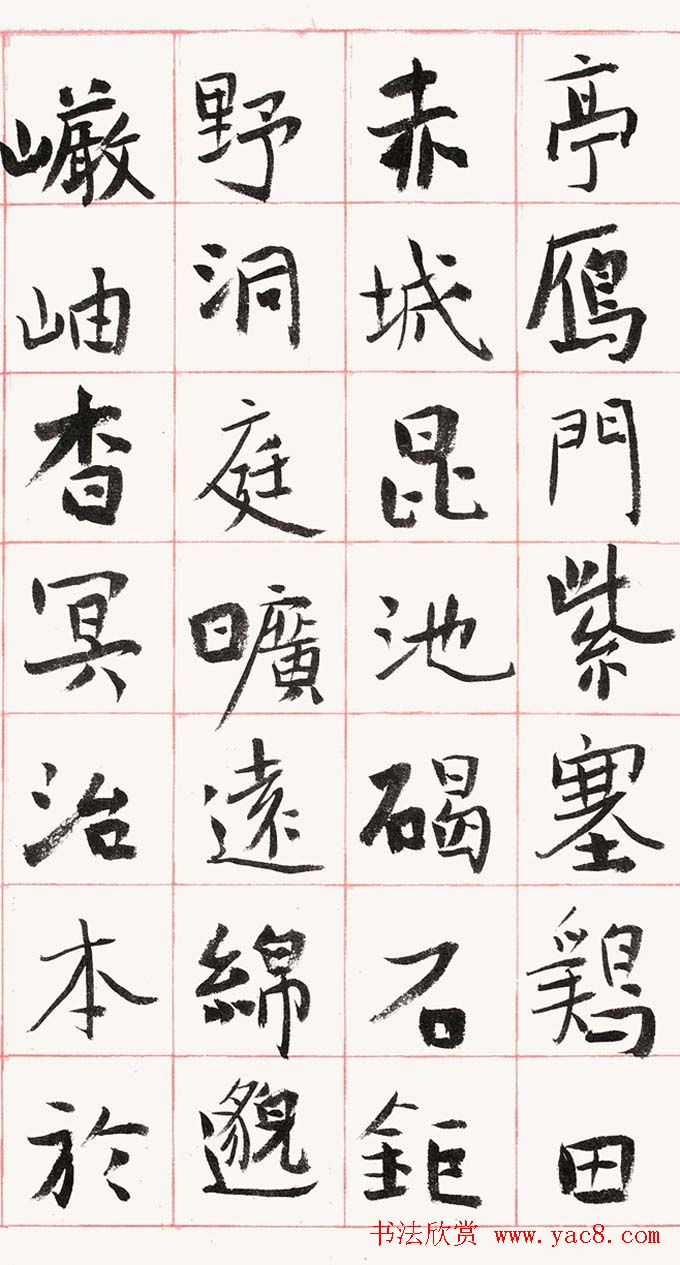 亭鴈門紫塞鷄田
赤城昆池碣石鉅
野洞庭曠遠綿邈
巖岫杳冥治本於
书法欣赏 www.yac8.com